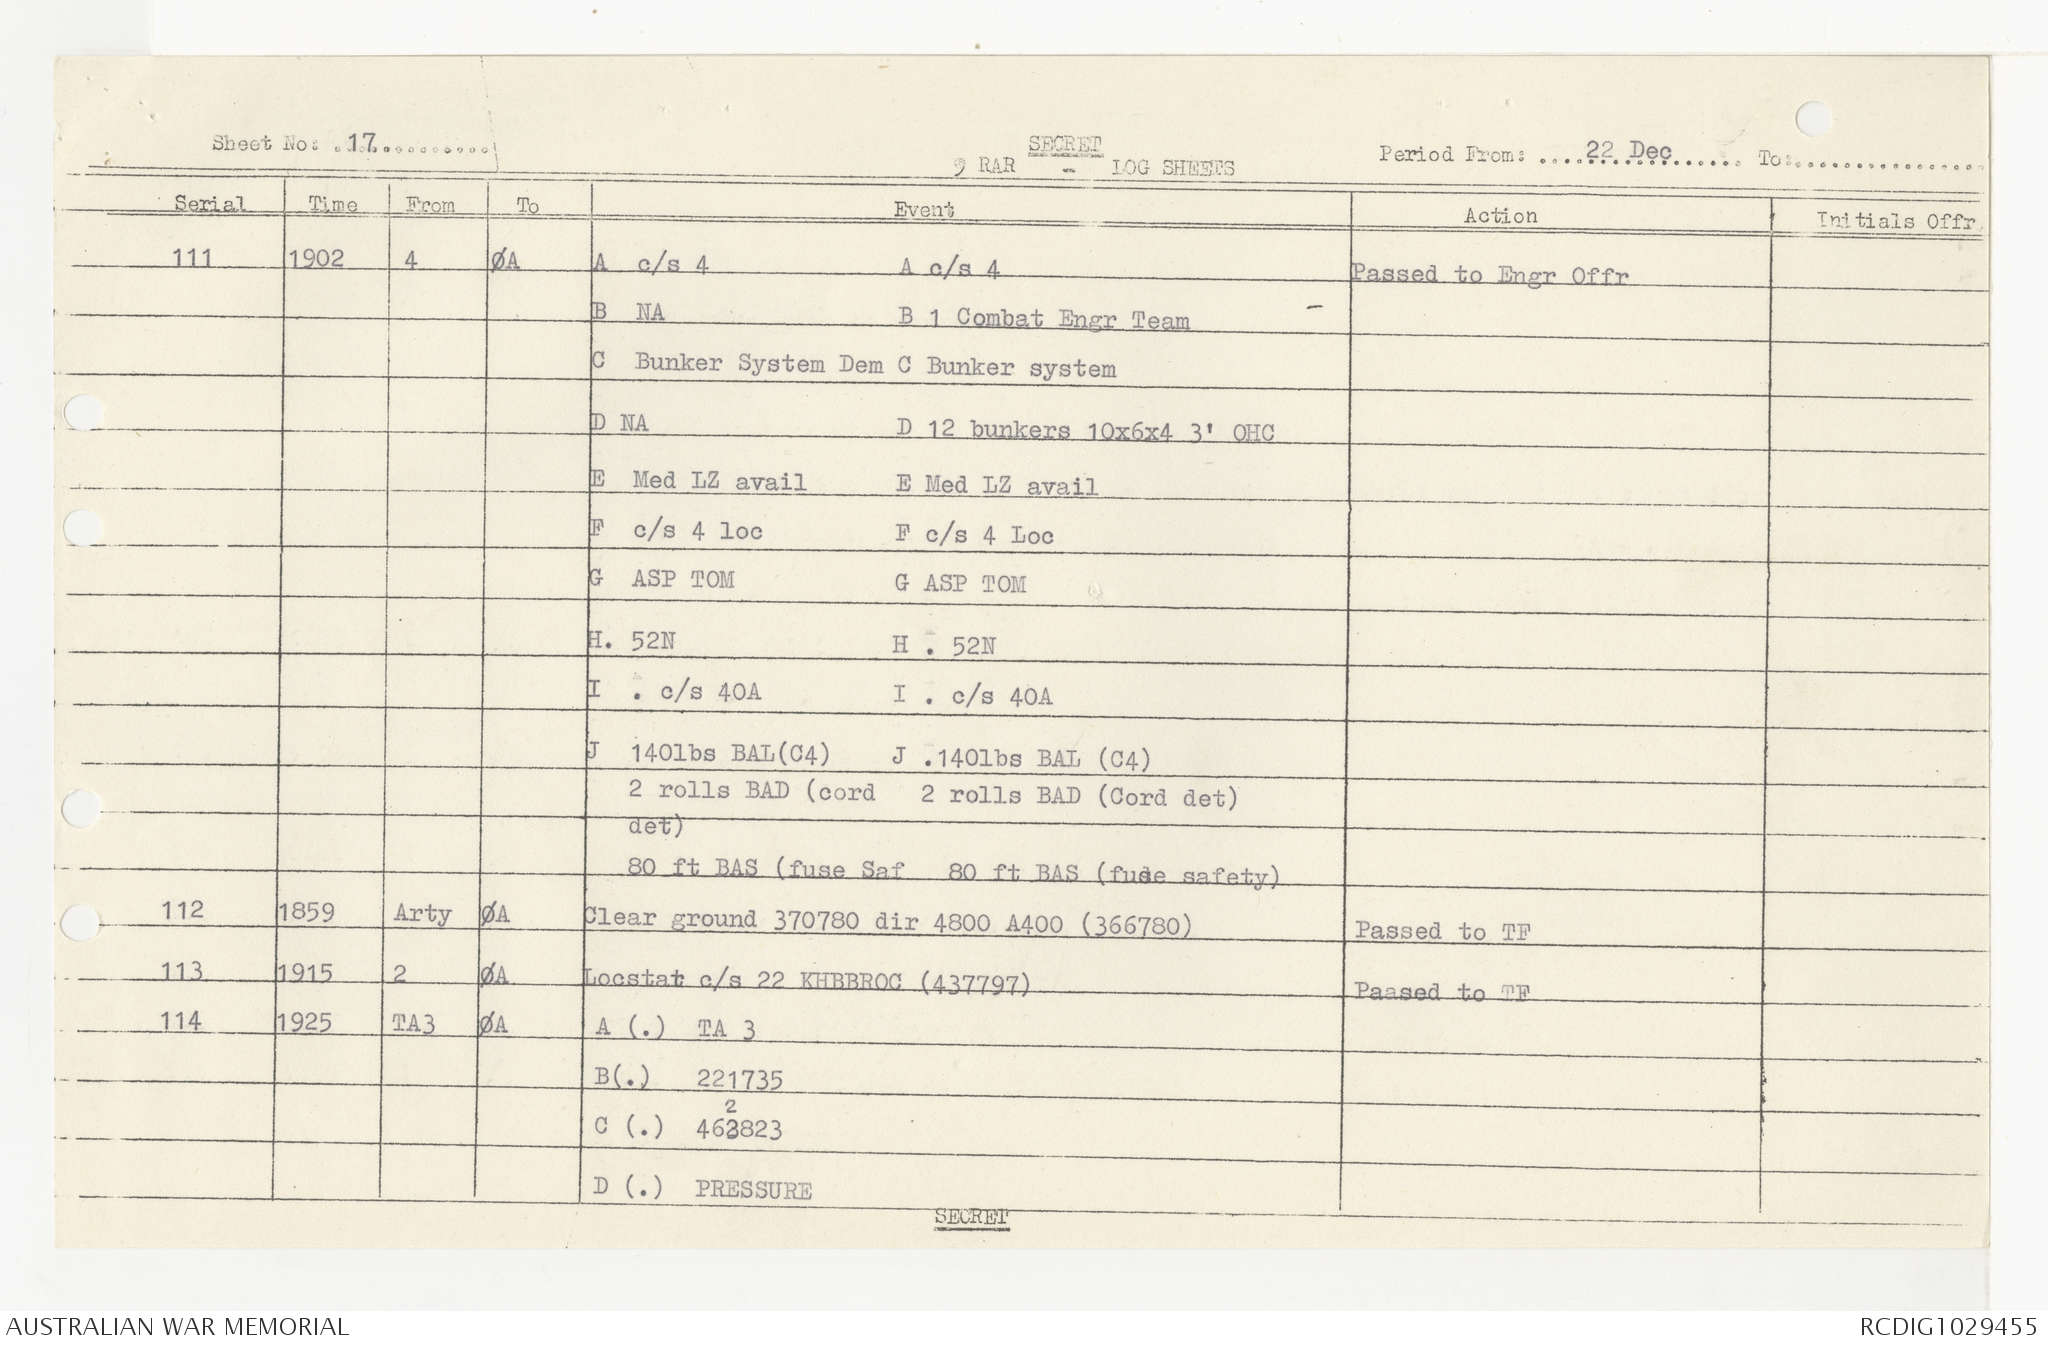 Sheet No: .17............
SECRET
9 RAR - LOG SHEETS
Period From: ....22 Dec...... To:..................
Serial Time From To Event Action Initials Offr
111 1902 4 ØA A c/s 4 A c/s 4 Passed to Engr Offr
B NA B 1 Combat Engr Team
C Bunker System Dem C Bunker system
D NA D 12 bunkers 10x6x4 3' OHC
E Med LZ avail E Med LZ avail
F c/s 4 loc F c/s 4 Loc
G ASP TOM G ASP TOM
H. 52N H . 52N
I . c/s 40A I . c/s 40A
J 140lbs BAL(C4) J .140lbs BAL (C4)
2 rolls BAD (cord 2 rolls BAD (Cord det)
det)
80 ft BAS (fuse Saf 80 ft BAS (fuse safety)
112 1859 Arty ØA Clear ground 370780 dir 4800 A400 (366780) Passed to TF
113 1915 2 ØA Locstat c/s 22 KHBBROC (437797) Paased to TF
114 1925 TA3 ØA A (.) TA 3
B(.) 221735
2
C (.) 463823
D (.) PRESSURE
SECRET
AUSTRALIAN WAR MEMORIAL
RCDIG1029455